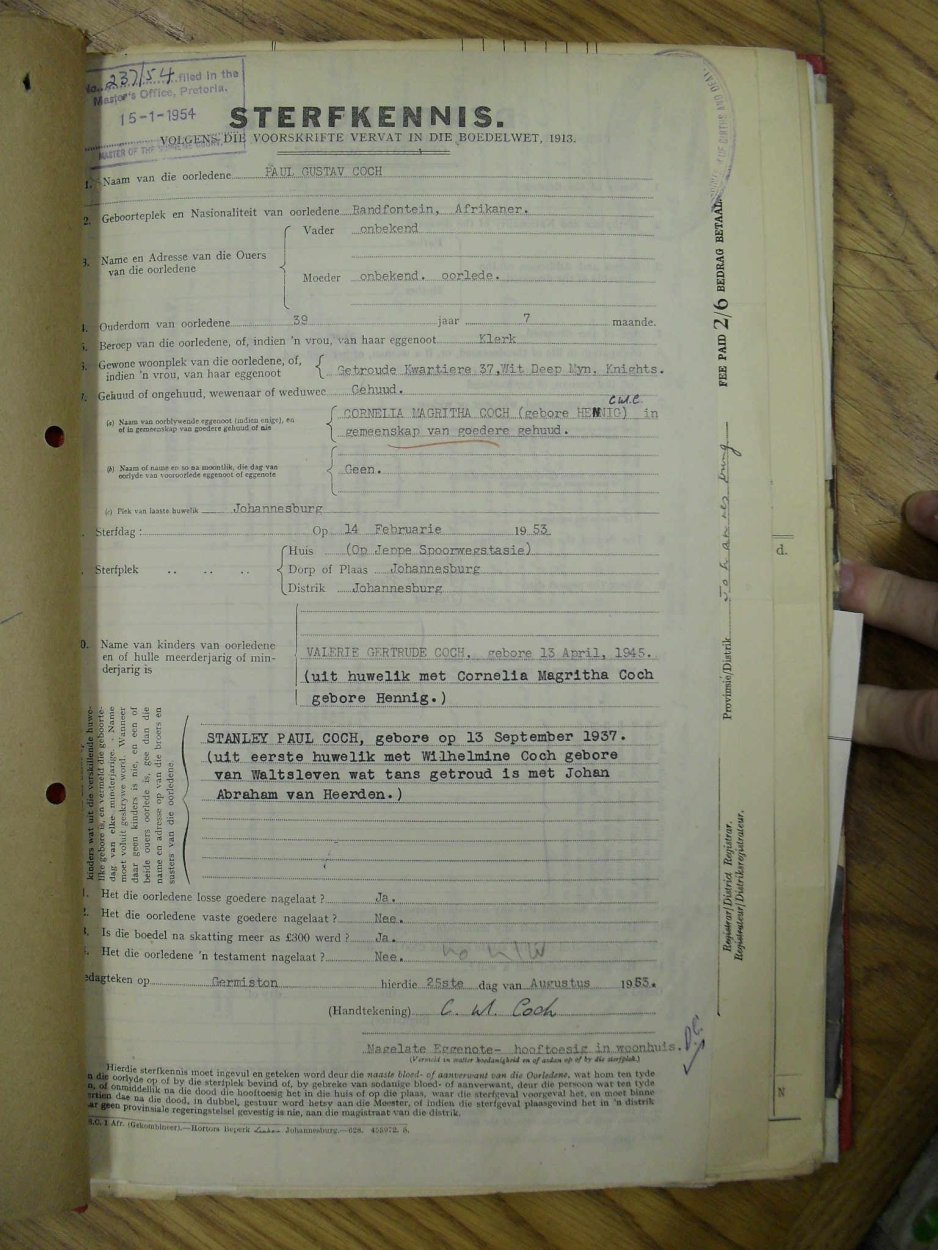 No. 237/54 filed in the
Master's Office, Pretoria.
15-1-1954
MASTER OF THE SUPREME COURT.
STERFKENNIS.
VOLGENS DIE VOORSKRIFTE VERVAT IN DIE BOEDELWET, 1913.
1. Naam van die oorledene PAUL GUSTAV COCH
2. Geboorteplek en Nasionaliteit van oorledene Randfontein, Afrikaner.
3. Name en Adresse van die Ouers van die oorledene
Vader onbekend
Moeder onbekend. oorlede.
4. Ouderdom van oorledene 39 jaar 7 maande.
5. Beroep van die oorledene, of, indien 'n vrou, van haar eggenoot Klerk
6. Gewone woonplek van die oorledene, of,
indien 'n vrou, van haar eggenoot
Getroude Kwartiere 37, Wit Deep Myn. Knights.
7. Gehuud of ongehuud, wewenaar of weduwee Gehuud.
C.M.C.
(a) Naam van oorblywende eggenoot (indien enige), en
of in gemeenskap van goedere gehuud of nie
CORNELIA MAGRITHA COCH (gebore HENNIG) in
gemeenskap van goedere gehuud.
(b) Naam of name en so na moontlik, die dag van
oorlyde van vooroorlede eggenoot of eggenote
Geen.
(c) Plek van laaste huwelik Johannesburg
Sterfdag: Op 14 Februarie 1953
Sterfplek .. .. ..
Huis (Op Jeppe Spoorwegstasie)
Dorp of Plaas Johannesburg
Distrik Johannesburg
0. Name van kinders van oorledene
en of hulle meerderjarig of min-
derjarig is
VALERIE GERTRUDE COCH, gebore 13 April, 1945.
(uit huwelik met Cornelia Magritha Coch
gebore Hennig.)
kinders wat uit die verskillende huwe-
like gebore is, en vermeld die geboorte-
dag van elke minderjarige. Name
moet voluit geskrywe word. Wanneer
daar geen kinders is nie, en een of
beide ouers oorlede is, gee dan die
name en adresse op van die broers en
susters van die oorledene.
STANLEY PAUL COCH, gebore op 13 September 1937.
(uit eerste huwelik met Wilhelmine Coch gebore
van Waltsleven wat tans getroud is met Johan
Abraham van Heerden.)
1. Het die oorledene losse goedere nagelaat? Ja.
2. Het die oorledene vaste goedere nagelaat? Nee.
3. Is die boedel na skatting meer as £300 werd? Ja.
Het die oorledene 'n testament nagelaat? Nee.
edagteken op Germiston hierdie 25ste dag van Augustus 1953.
(Handtekening) C. M. Coch
Nagelate Eggenote- hooftoesig in woonhuis.
(Vermeld in watter hoedanigheid en of aldan op of by die sterfplek.)
Hierdie sterfkennis moet ingevul en geteken word deur die naaste bloed- of aanverwant van die Oorledene, wat hom ten tyde
n die oorlyde op of by die sterfplek bevind of, by gebreke van sodanige bloed- of aanverwant, deur die persoon wat ten tyde
n, of onmiddellik na die dood die hooftoesig het in die huis of op die plaas, waar die sterfgeval voorgeval het, en moet binne
ertien dae na die dood, in dubbel, gestuur word hetsy aan die Meester, of indien die sterfgeval plaasgevind het in 'n distrik
ar geen provinsiale regeringstelsel gevestig is nie, aan die magistraat van die distrik.
B.O. 1 Afr. (Gekombineer).—Hortors Beperk Johannesburg.—628. 455972. S.
FEE PAID 2/6 BEDRAG BETAAL
Provinsié/Distrik Johannesburg
Registrar/District Registrar.
Registrateur/Distriksregistrateur.
d.
N